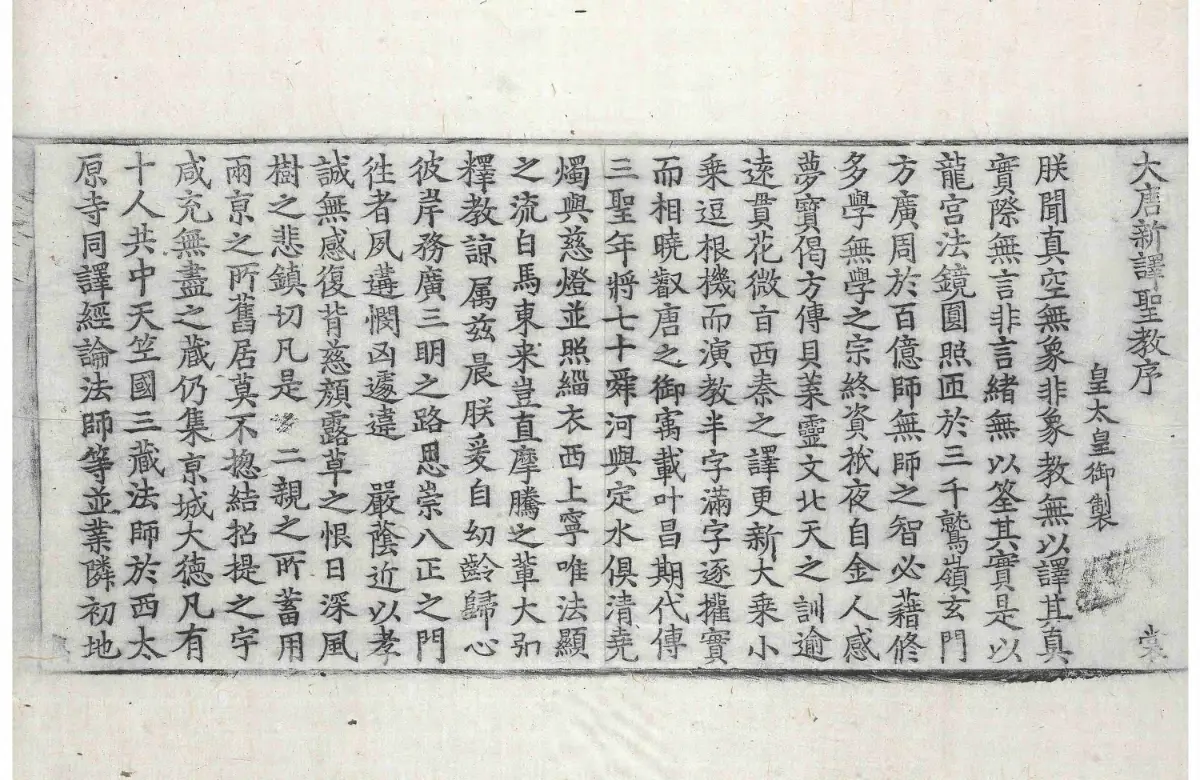 大唐新譯聖教序
皇太皇御製
朕聞真空無象非象教無以譯其真
實際無言非言緒無以筌其實是以
龍宮法鏡圓照匝於三千鷲嶺玄門
方廣周於百億師無師之智必藉修
多學無學之宗終資祇夜自金人感
夢寶偈方傳貝葉靈文北天之訓逾
遠貫花微言西秦之譯更新大乘小
乘逗根機而演教半字滿字逐權實
而相曉叡唐之御寓載叶昌期代傳
三聖年將七十舜河與定水俱清堯
燭與慈燈並照緇衣西上寧唯法顯
之流白馬東來豈直摩騰之輩大弘
釋教諒属兹晨朕爰自幼齡歸心
彼岸務廣三明之路思崇八正之門
往者夙遘憫凶遽違 嚴蔭近以孝
誠無感復背慈顔露草之恨日深風
樹之悲鎮切凡是 二親之所蓄用
兩京之所舊居莫不揔結招提之宇
咸充無盡之藏仍集京城大德凡有
十人共中天竺國三藏法師於西太
原寺同譯經論法師等並業隣初地